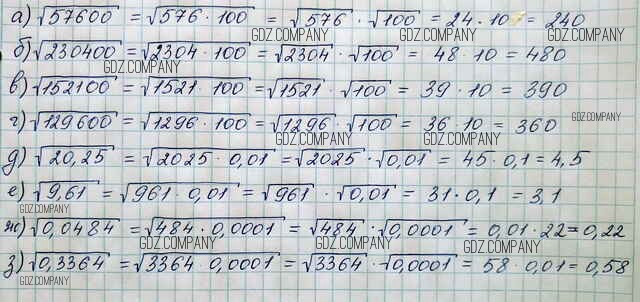 а) √57600 = √576 · 100 = √576 · √100 = 24 · 10 = 240
GDZ.COMPANY GDZ.COMPANY GDZ.COMPANY
б) √230400 = √2304 · 100 = √2304 · √100 = 48 · 10 = 480
GDZ.COMPANY
в) √152100 = √1521 · 100 = √1521 · √100 = 39 · 10 = 390
GDZ.COMPANY
г) √129600 = √1296 · 100 = √1296 · √100 = 36 · 10 = 360
GDZ.COMPANY
GDZ.COMPANY GDZ.COMPANY
д) √20,25 = √2025 · 0,01 = √2025 · √0,01 = 45 · 0,1 = 4,5
е) √9,61 = √961 · 0,01 = √961 · √0,01 = 31 · 0,1 = 3,1
GDZ.COMPANY
ж) √0,0484 = √484 · 0,0001 = √484 · √0,0001 = 0,01 · 22 = 0,22
GDZ.COMPANY GDZ.COMPANY GDZ.COMPANY
з) √0,3364 = √3364 · 0,0001 = √3364 · √0,0001 = 58 · 0,01 = 0,58
GDZ.COMPANY